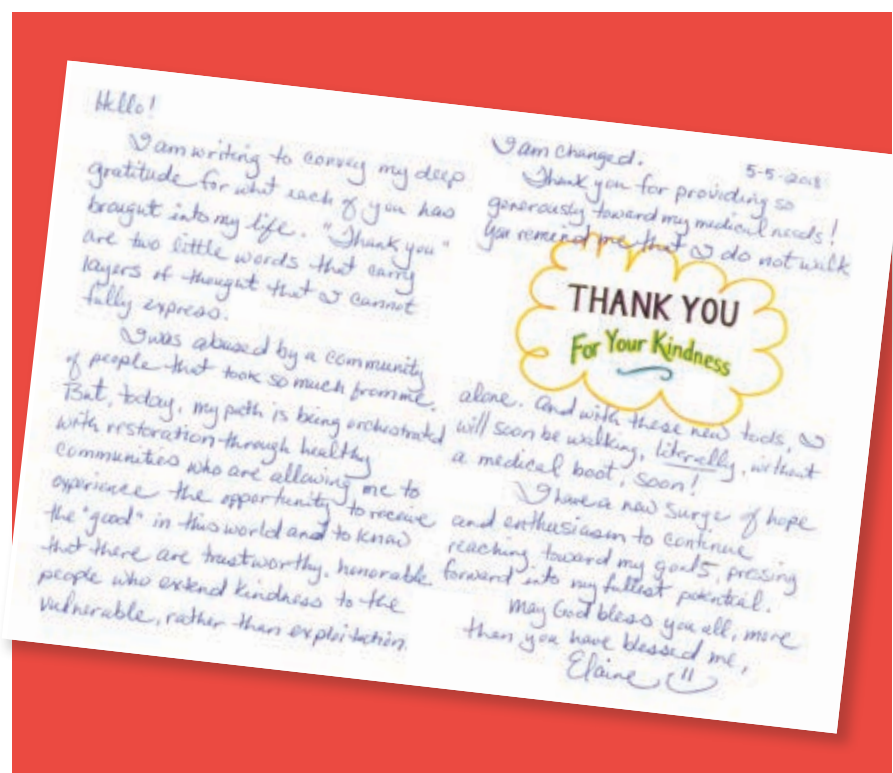 Hello!
I am writing to convey my deep
gratitude for what each of you has
brought into my life. "Thank you"
are two little words that carry
layers of thought that I cannot
fully express.
I was abused by a community
of people that took so much from me.
But, today, my path is being orchestrated
with restoration through healthy
communities who are allowing me to
experience the opportunity to receive
the "good" in this world and to know
that there are trustworthy, honorable
people who extend kindness to the
vulnerable, rather than exploitation.
I am changed.
5-5-2018
Thank you for providing so
generously toward my medical needs!
You remind me that I do not walk
THANK YOU
For Your Kindness
alone. And with these new tools, I
will soon be walking, literally, without
a medical boot, soon!
I have a new surge of hope
and enthusiasm to continue
reaching toward my goals, pressing
forward into my fullest potential.
May God bless you all, more
then you have blessed me,
Elaine